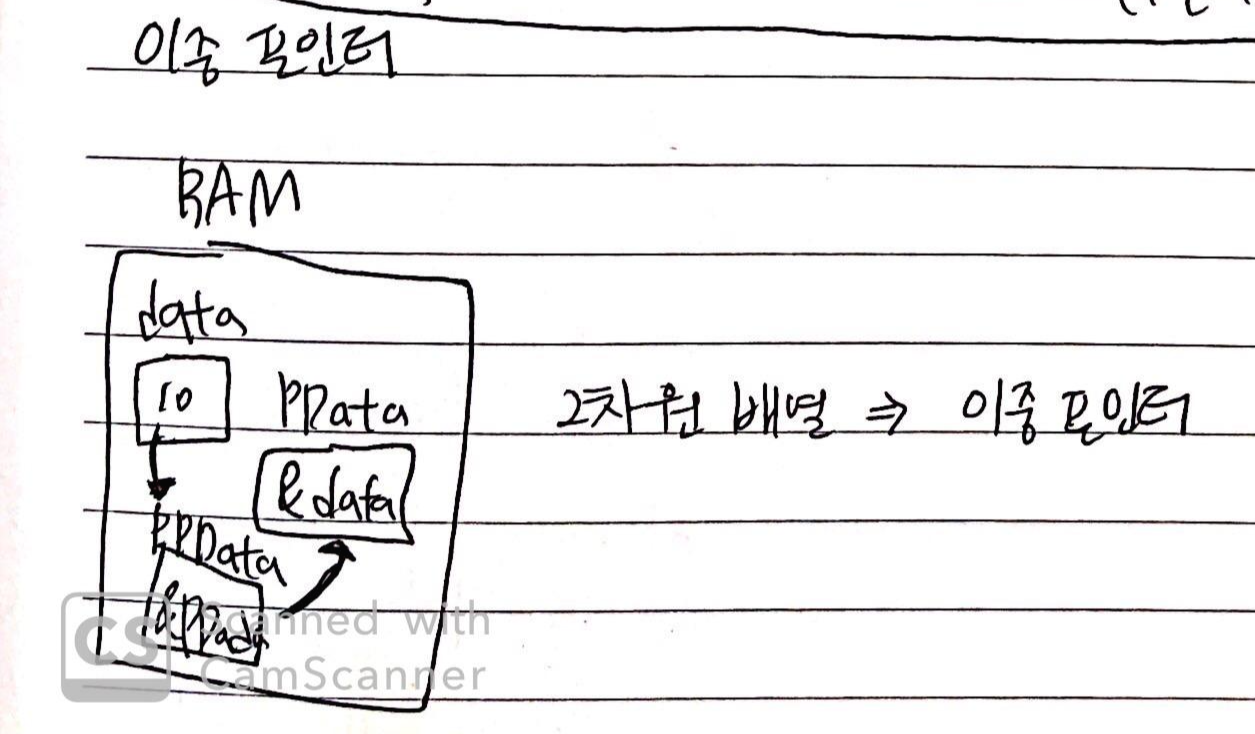 이중 포인터
RAM
data
10
PData
2차원 배열 ⇒ 이중 포인터
&data
PPData
&PData
Scanned with
CS
CamScanner